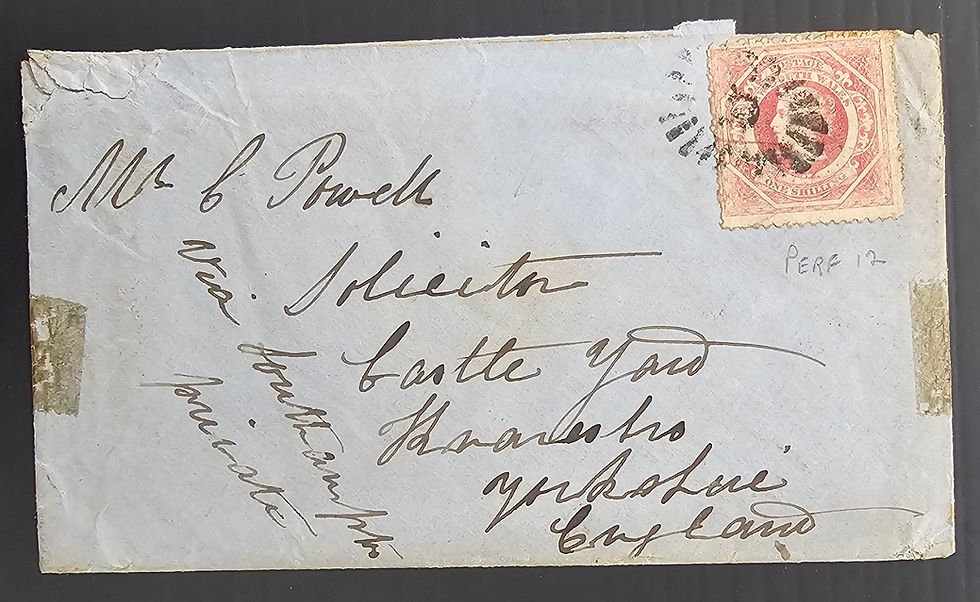 Mr C Powell
Solicitor
Castle Yard
Knaresbro
Yorkshire
England
Via Southampton
private
POSTAGE
SOUTH WALES
ONE SHILLING
PERF 12